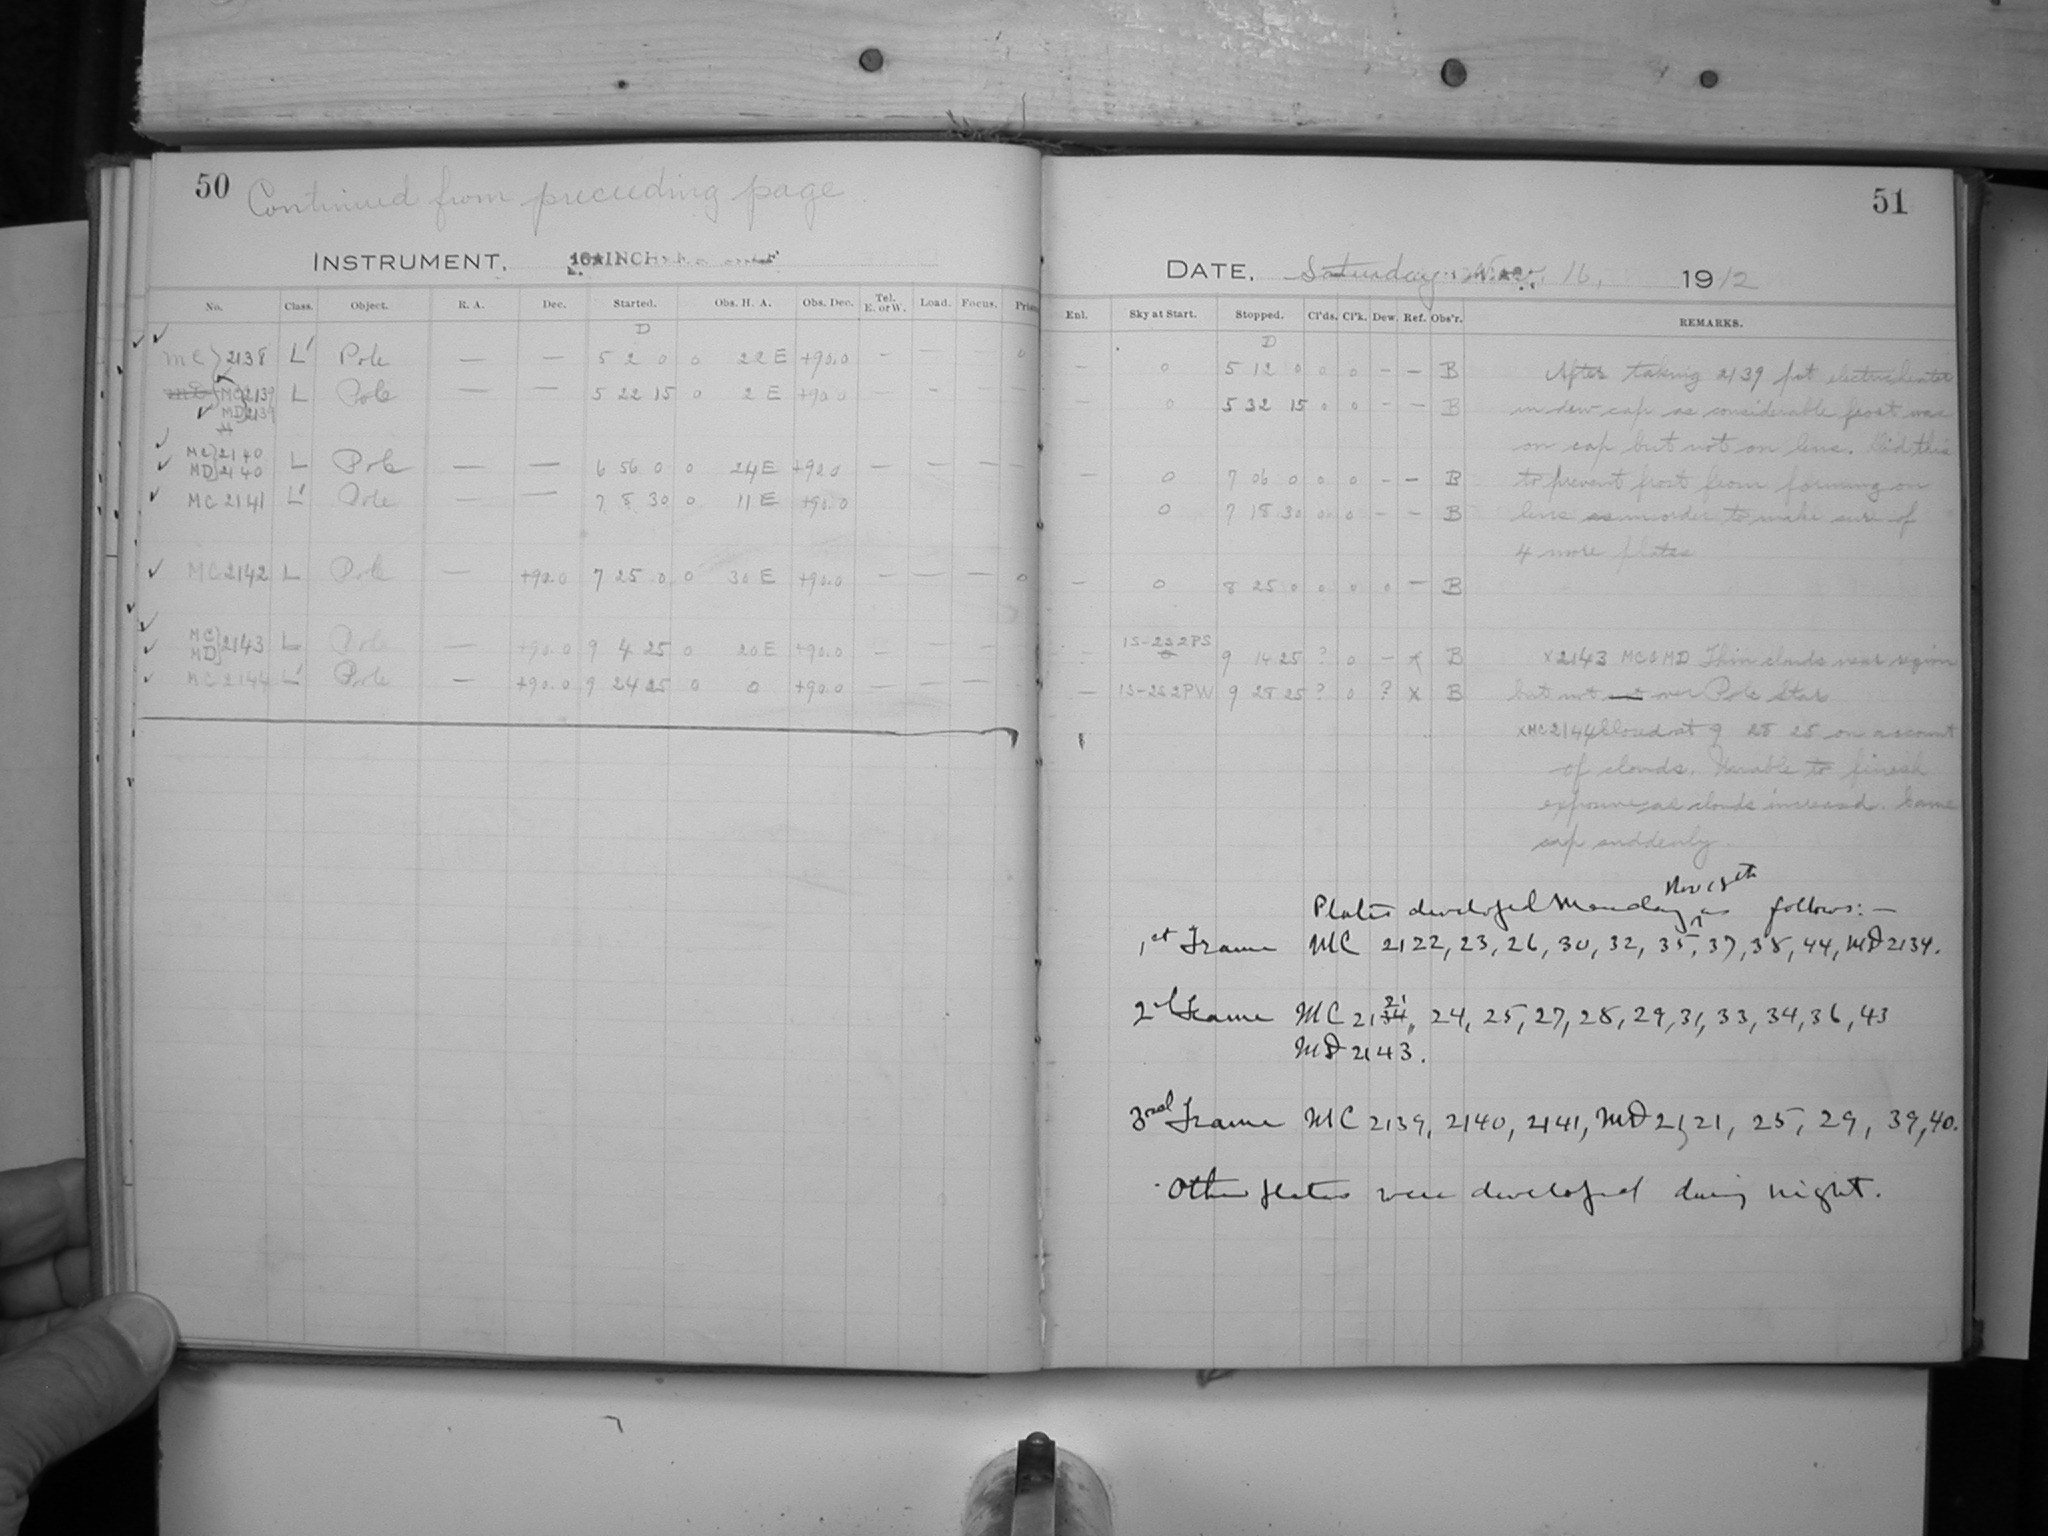 50 Continued from preceeding page.
INSTRUMENT, 16 INCH
No. Class. Object. R. A. Dec. Started. Obs. H. A. Obs. Dec. Tel. E. or W. Load. Focus. Prism
D
MC 2138 L' Pole — — 5 2 0 0 22 E +90.0 — — — 0
MC 2139 L Pole — — 5 22 15 0 2 E +90.0 — — —
MD 2139
MC 2140
MD 2140 L Pole — — 6 56 0 0 24 E +90.0 — — — —
MC 2141 L' Pole — — 7 8 30 0 11 E +90.0
MC 2142 L Pole — +90.0 7 25 0 0 30 E +90.0 — — — 0
MC
MD 2143 L Pole — +90.0 9 4 25 0 20 E +90.0 — — —
MC 2144 L' Pole — +90.0 9 24 25 0 0 +90.0 — — —
51
DATE, Saturday, Nov. 16, 1912
Enl. Sky at Start. Stopped. Cl'ds. Cl'k. Dew. Ref. Obs'r. REMARKS.
D
— 0 5 12 0 0 0 — — B After taking 2139 put electric heater
— 0 5 32 15 0 0 — — B in dew cap as considerable frost was
on cap but not on lens. Did this
— 0 7 06 0 0 0 — — B to prevent frost from forming on
0 7 18 30 0 0 — — B lens in order to make sure of
4 more plates
— 0 8 25 0 0 0 0 — B
1S-232PS 9 14 25 ? 0 — x B x2143 MC & MD Thin clouds near region
— 1S-232PW 9 28 25 ? 0 ? x B but not over Pole Star
xMC2144 Closed at 9 28 25 on account
of clouds. Unable to finish
exposure as clouds increased. Came
up suddenly.
Plates developed Monday Nov 18th as follows:—
1st Frame MC 2122, 23, 26, 30, 32, 35, 37, 38, 44, MD 2134.
2d Frame MC 2121, 24, 25, 27, 28, 29, 31, 33, 34, 36, 43
MD 2143.
3rd Frame MC 2139, 2140, 2141, MD 2121, 25, 29, 39, 40.
Other plates were developed during night.